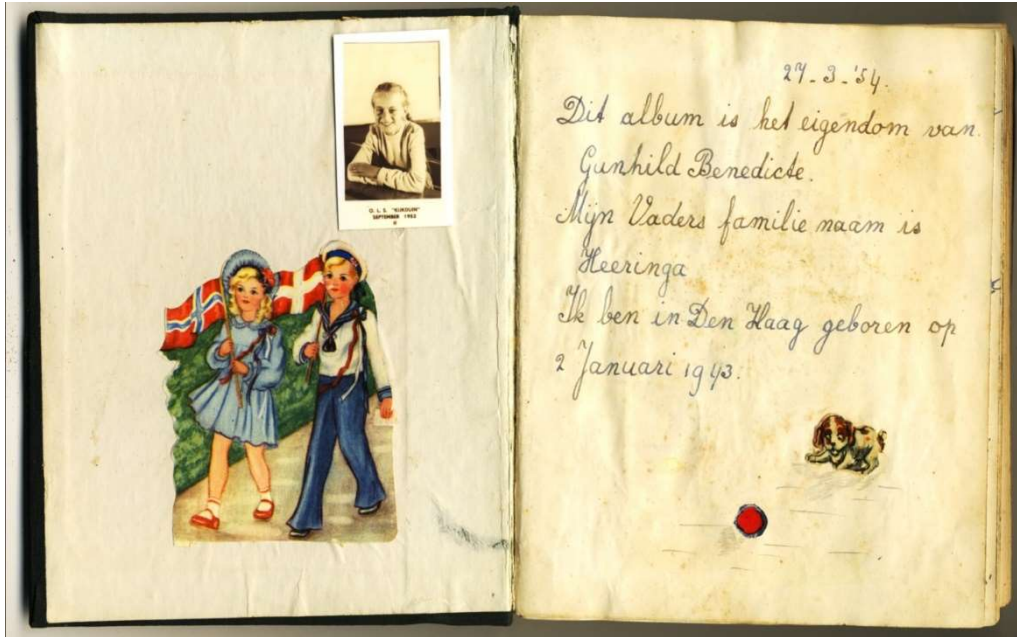 O. L. S. "KIJKDUIN"
SEPTEMBER 1952
27-3-'54.
Dit album is het eigendom van.
Gunhild Benedicte.
Mijn Vaders familie naam is
Heeringa
Ik ben in Den Haag geboren op
2 Januari 1943.